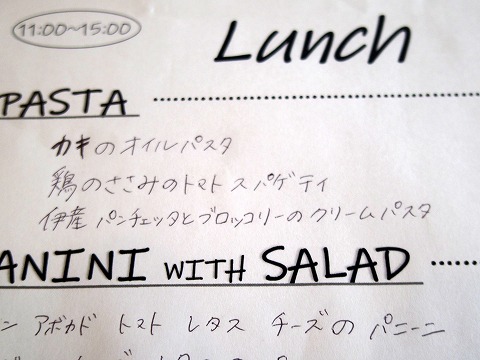 11:00~15:00
Lunch
PASTA
カキのオイルパスタ
鶏のささみのトマトスパゲティ
伊産 パンチェッタとブロッコリーのクリームパスタ
ANINI WITH SALAD
ン アボカド トマト レタス チーズの パニーニ